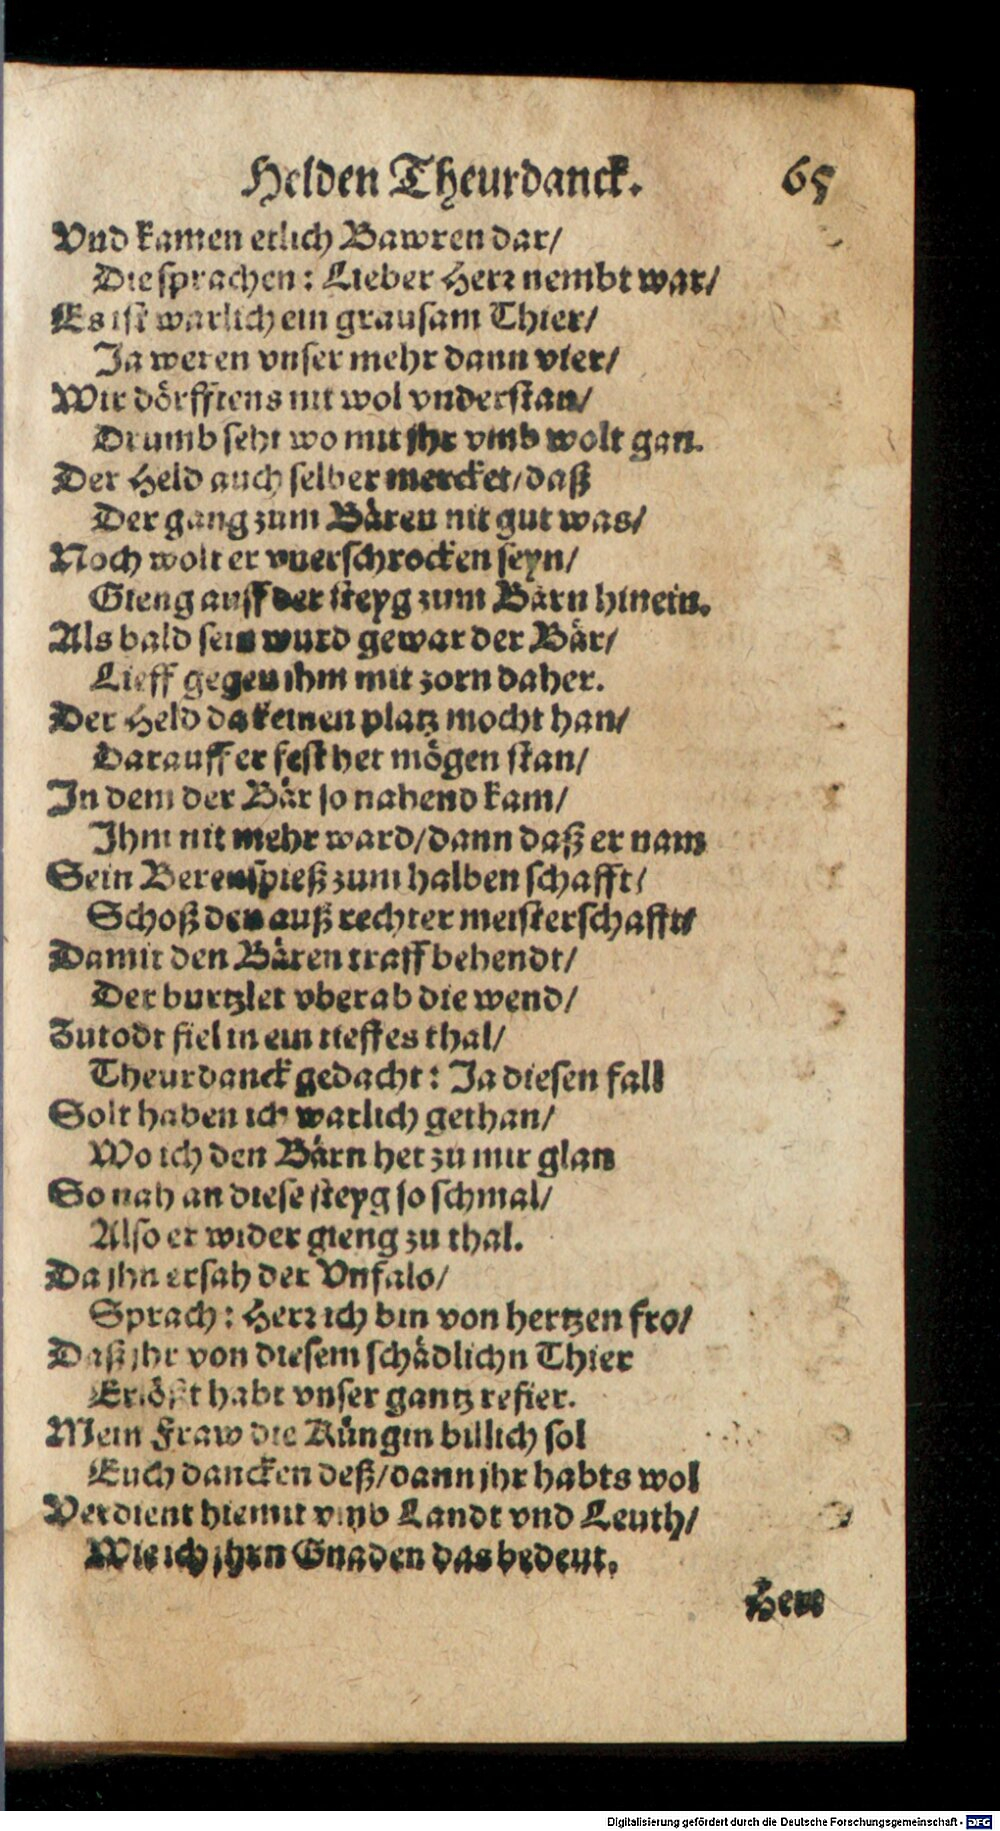 Helden Theurdanck. 65
Vnd kamen etlich Bawren dar/
Die sprachen: Lieber Herr nembt war/
Es ist warlich ein grausam Thier/
Ja weren vnser mehr dann vier/
Wir dörfftens nit wol vnderstan/
Drumb seht wo mit jhr vmb wolt gan.
Der Held auch selber mercket/daß
Der gang zum Bären nit gut was/
Noch wolt er vnerschrocken seyn/
Gieng auff der steyg zum Bärn hinein.
Als bald sein wurd gewar der Bär/
Lieff gegen ihm mit zorn daher.
Der Held da keinen platz mocht han/
Darauff er fest het mögen stan/
In dem der Bär so nahend kam/
Ihm nit mehr ward/dann daß er nam
Sein Berenspieß zum halben schafft/
Schoß den auß rechter meisterschafft
Damit den Bären traff behendt/
Der burtzlet vber ab die wend/
Zutodt fiel in ein tieffes thal/
Theurdanck gedacht: Ja diesen fall
Solt haben ich warlich gethan/
Wo ich den Bärn het zu mir glan
So nah an diese steyg so schmal/
Also er wider gieng zu thal.
Da jhn ersah der Vnfalo/
Sprach: Herr ich bin von hertzen fro/
Daß jhr von diesem schädlichn Thier
Erlößt habt vnser gantz refier.
Mein Fraw die Küngin billich sol
Euch dancken deß/dann jhr habts wol
Verdient hiemit vmb Landt vnd Leuth/
Wie ich jhrn Gnaden das bedeut.
Herr
Digitalisierung gefördert durch die Deutsche Forschungsgemeinschaft - DFG